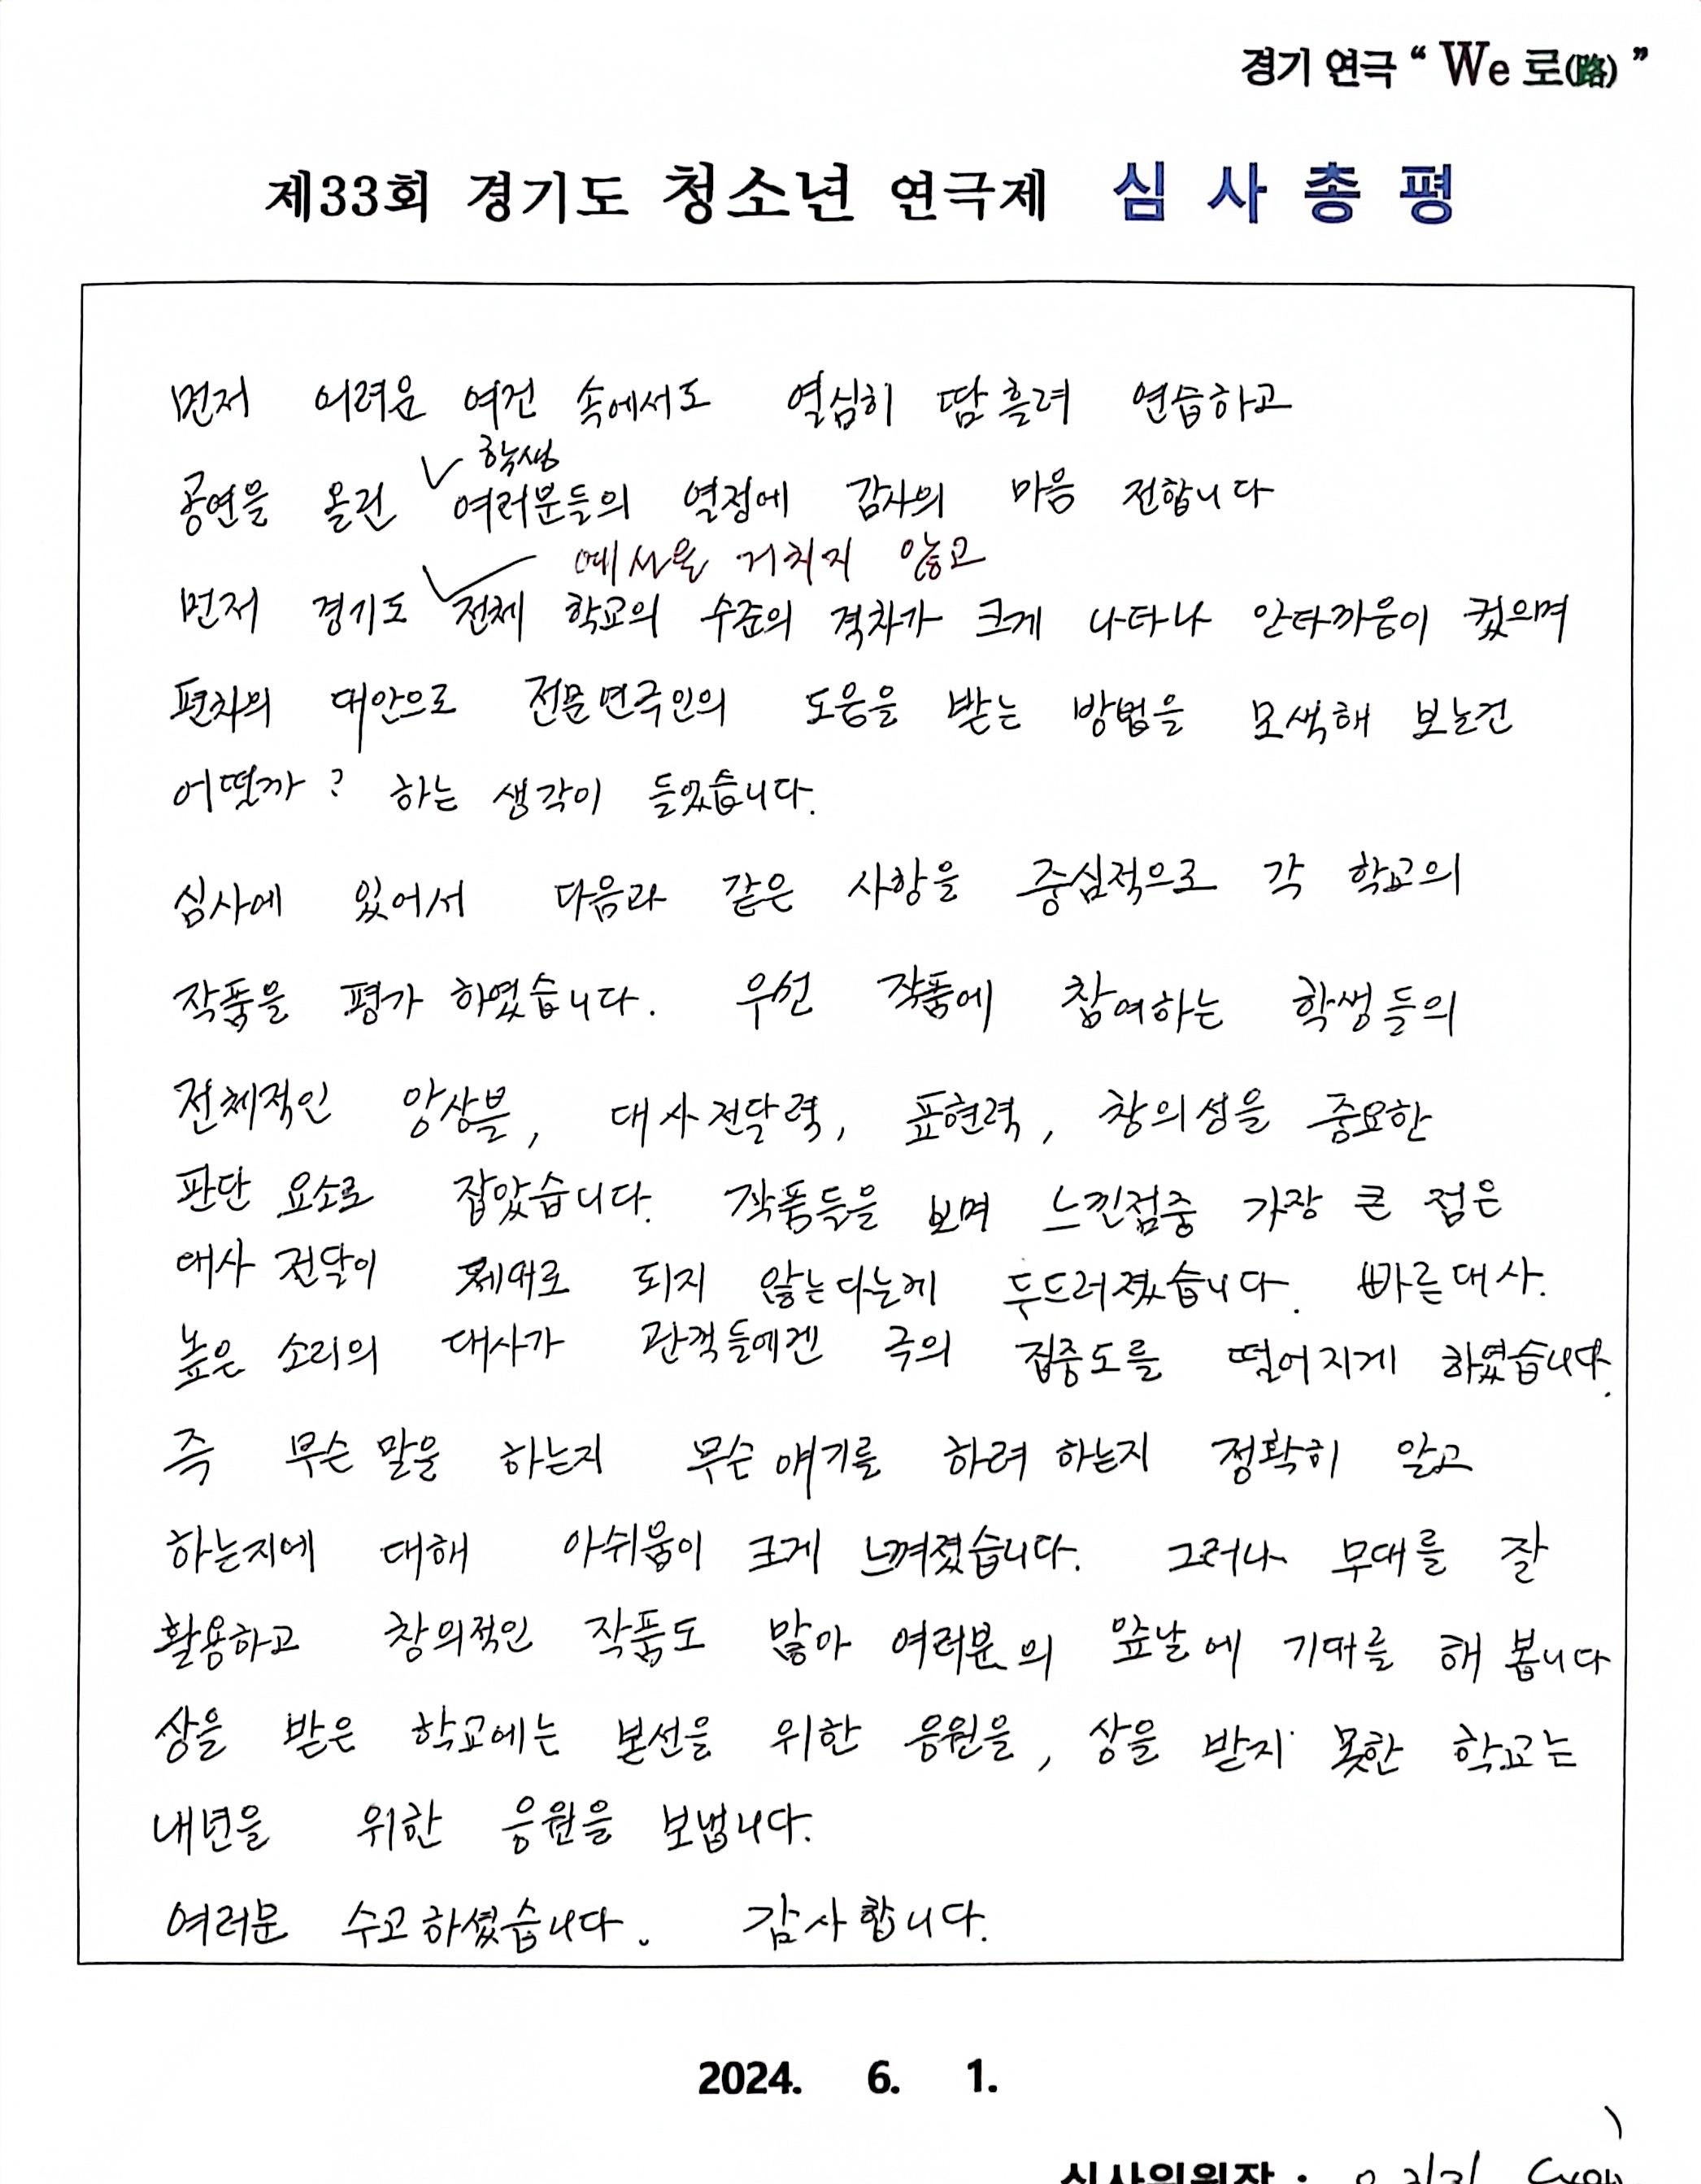 경기 연극 “ We 로(路) ”
제33회 경기도 청소년 연극제 심 사 총 평
먼저 어려운 여건 속에서도 열심히 땀 흘려 연습하고
학생
공연을 올린 여러분들의 열정에 감사의 마음 전합니다
예선을 거치지 않고
먼저 경기도 전체 학교의 수준의 격차가 크게 나타나 안타까움이 컸으며
편차의 대안으로 전문연극인의 도움을 받는 방법을 모색해 보는건
어떨까? 하는 생각이 들었습니다.
심사에 있어서 다음과 같은 사항을 중심적으로 각 학교의
작품을 평가 하였습니다. 우선 작품에 참여하는 학생들의
전체적인 앙상블, 대사전달력, 표현력, 창의성을 중요한
판단 요소로 잡았습니다. 작품들을 보며 느낀점중 가장 큰 점은
대사 전달이 제대로 되지 않는다는게 두드러졌습니다. 빠른대사.
높은 소리의 대사가 관객들에겐 극의 집중도를 떨어지게 하였습니다.
즉 무슨 말을 하는지 무슨 얘기를 하려 하는지 정확히 알고
하는지에 대해 아쉬움이 크게 느껴졌습니다. 그러나 무대를 잘
활용하고 창의적인 작품도 많아 여러분의 앞날에 기대를 해 봅니다
상을 받은 학교에는 본선을 위한 응원을, 상을 받지 못한 학교는
내년을 위한 응원을 보냅니다.
여러분 수고하셨습니다. 감사합니다.
2024. 6. 1.
심사위원장 :